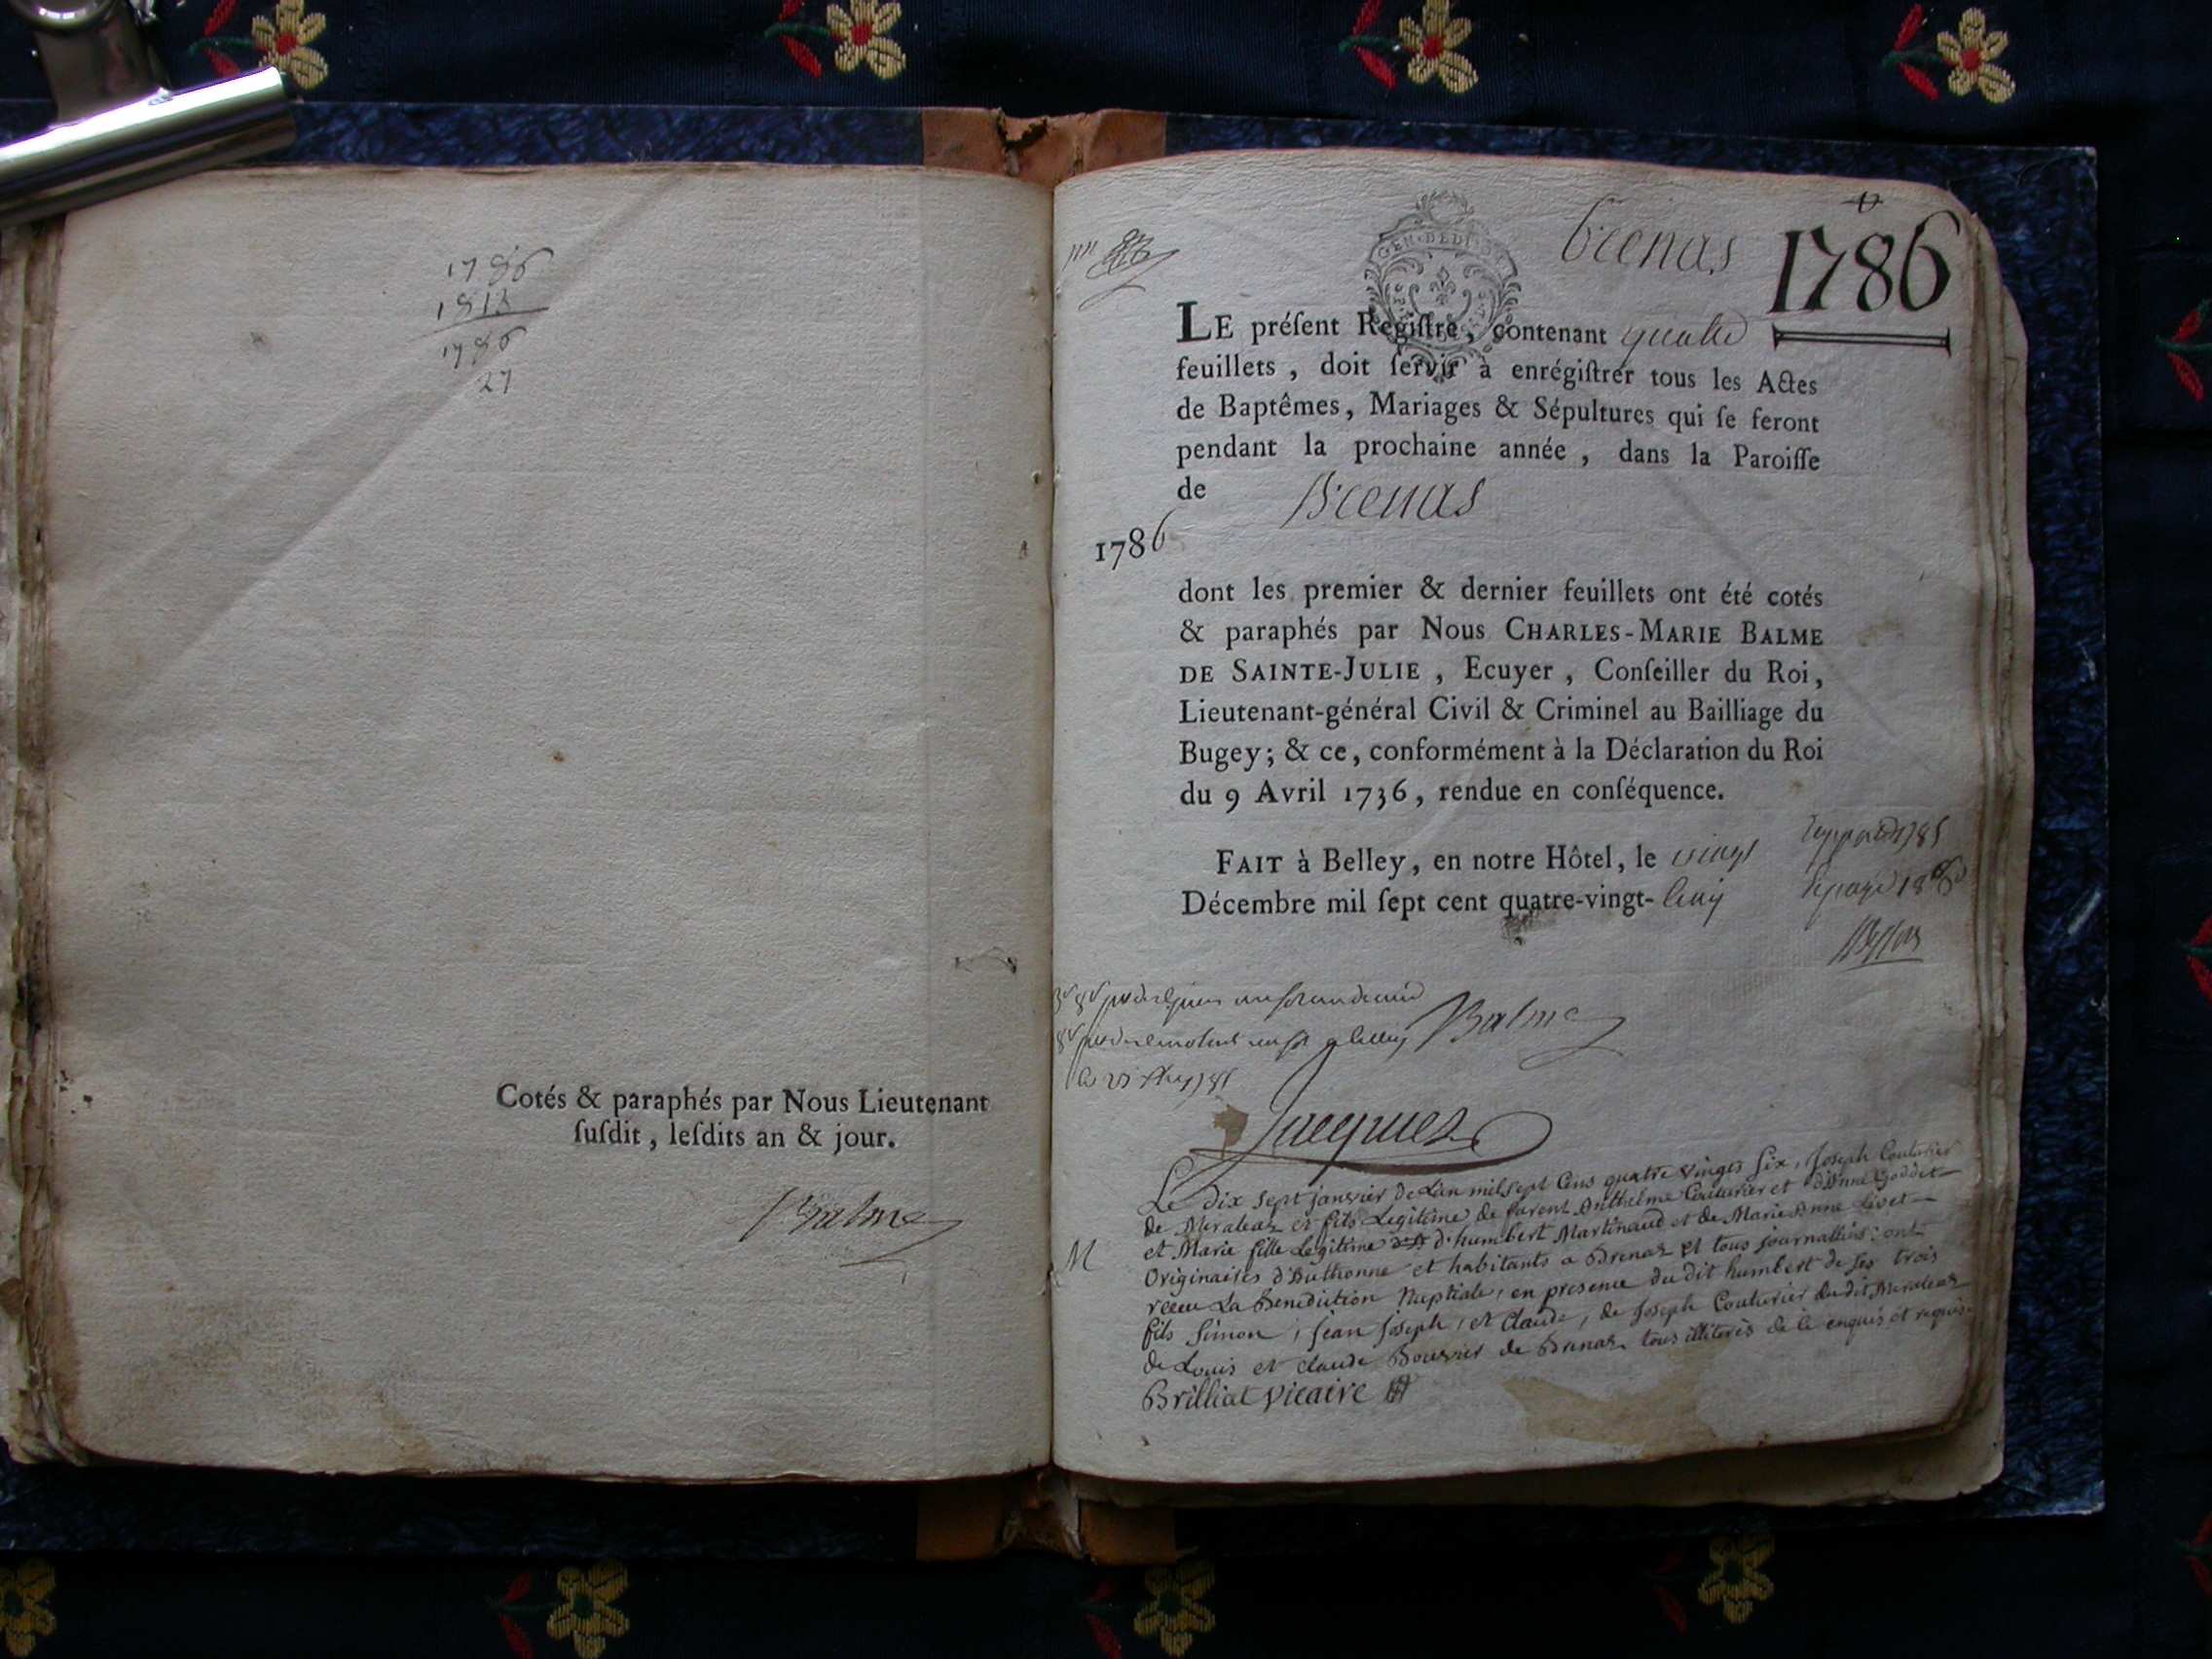 1786
1813
1786
27
Cotés & paraphés par Nous Lieutenant
ſuſdit, leſdits an & jour.
Balme
Brenas 1786
GEN·DE DIJON
LE préſent Regiſtre, contenant quatre
feuillets, doit ſervir à enrégiſtrer tous les Actes
de Baptêmes, Mariages & Sépultures qui ſe feront
pendant la prochaine année, dans la Paroiſſe
de Brenas
1786
dont les premier & dernier feuillets ont été cotés
& paraphés par Nous CHARLES-MARIE BALME
DE SAINTE-JULIE, Ecuyer, Conſeiller du Roi,
Lieutenant-général Civil & Criminel au Bailliage du
Bugey; & ce, conformément à la Déclaration du Roi
du 9 Avril 1736, rendue en conſéquence.
FAIT à Belley, en notre Hôtel, le vingt
Décembre mil ſept cent quatre-vingt-cinq
Balme
Jacques
Le Dix Sept janvier De L'an mil Sept Cens quatre vingts Six, Joseph Couturier
de Meraleaz et fils Legitime de Anthelme Couturier et d'Anne Goddet
M
et Marie fille Legitime d'humbert Martinand et de Marie Anne Livet
Originaires d' et habitants a Brenaz et tous journalliers ont
receu La Benediction Nuptiale, en presence du dit humbert de ses trois
fils Simon, Jean Joseph, et Claude, de Joseph Couturier du dit Meraleaz
de Louis et claude Bouvier de Brenaz tous illiteres de ce enquis et requis
Brilliat Vicaire